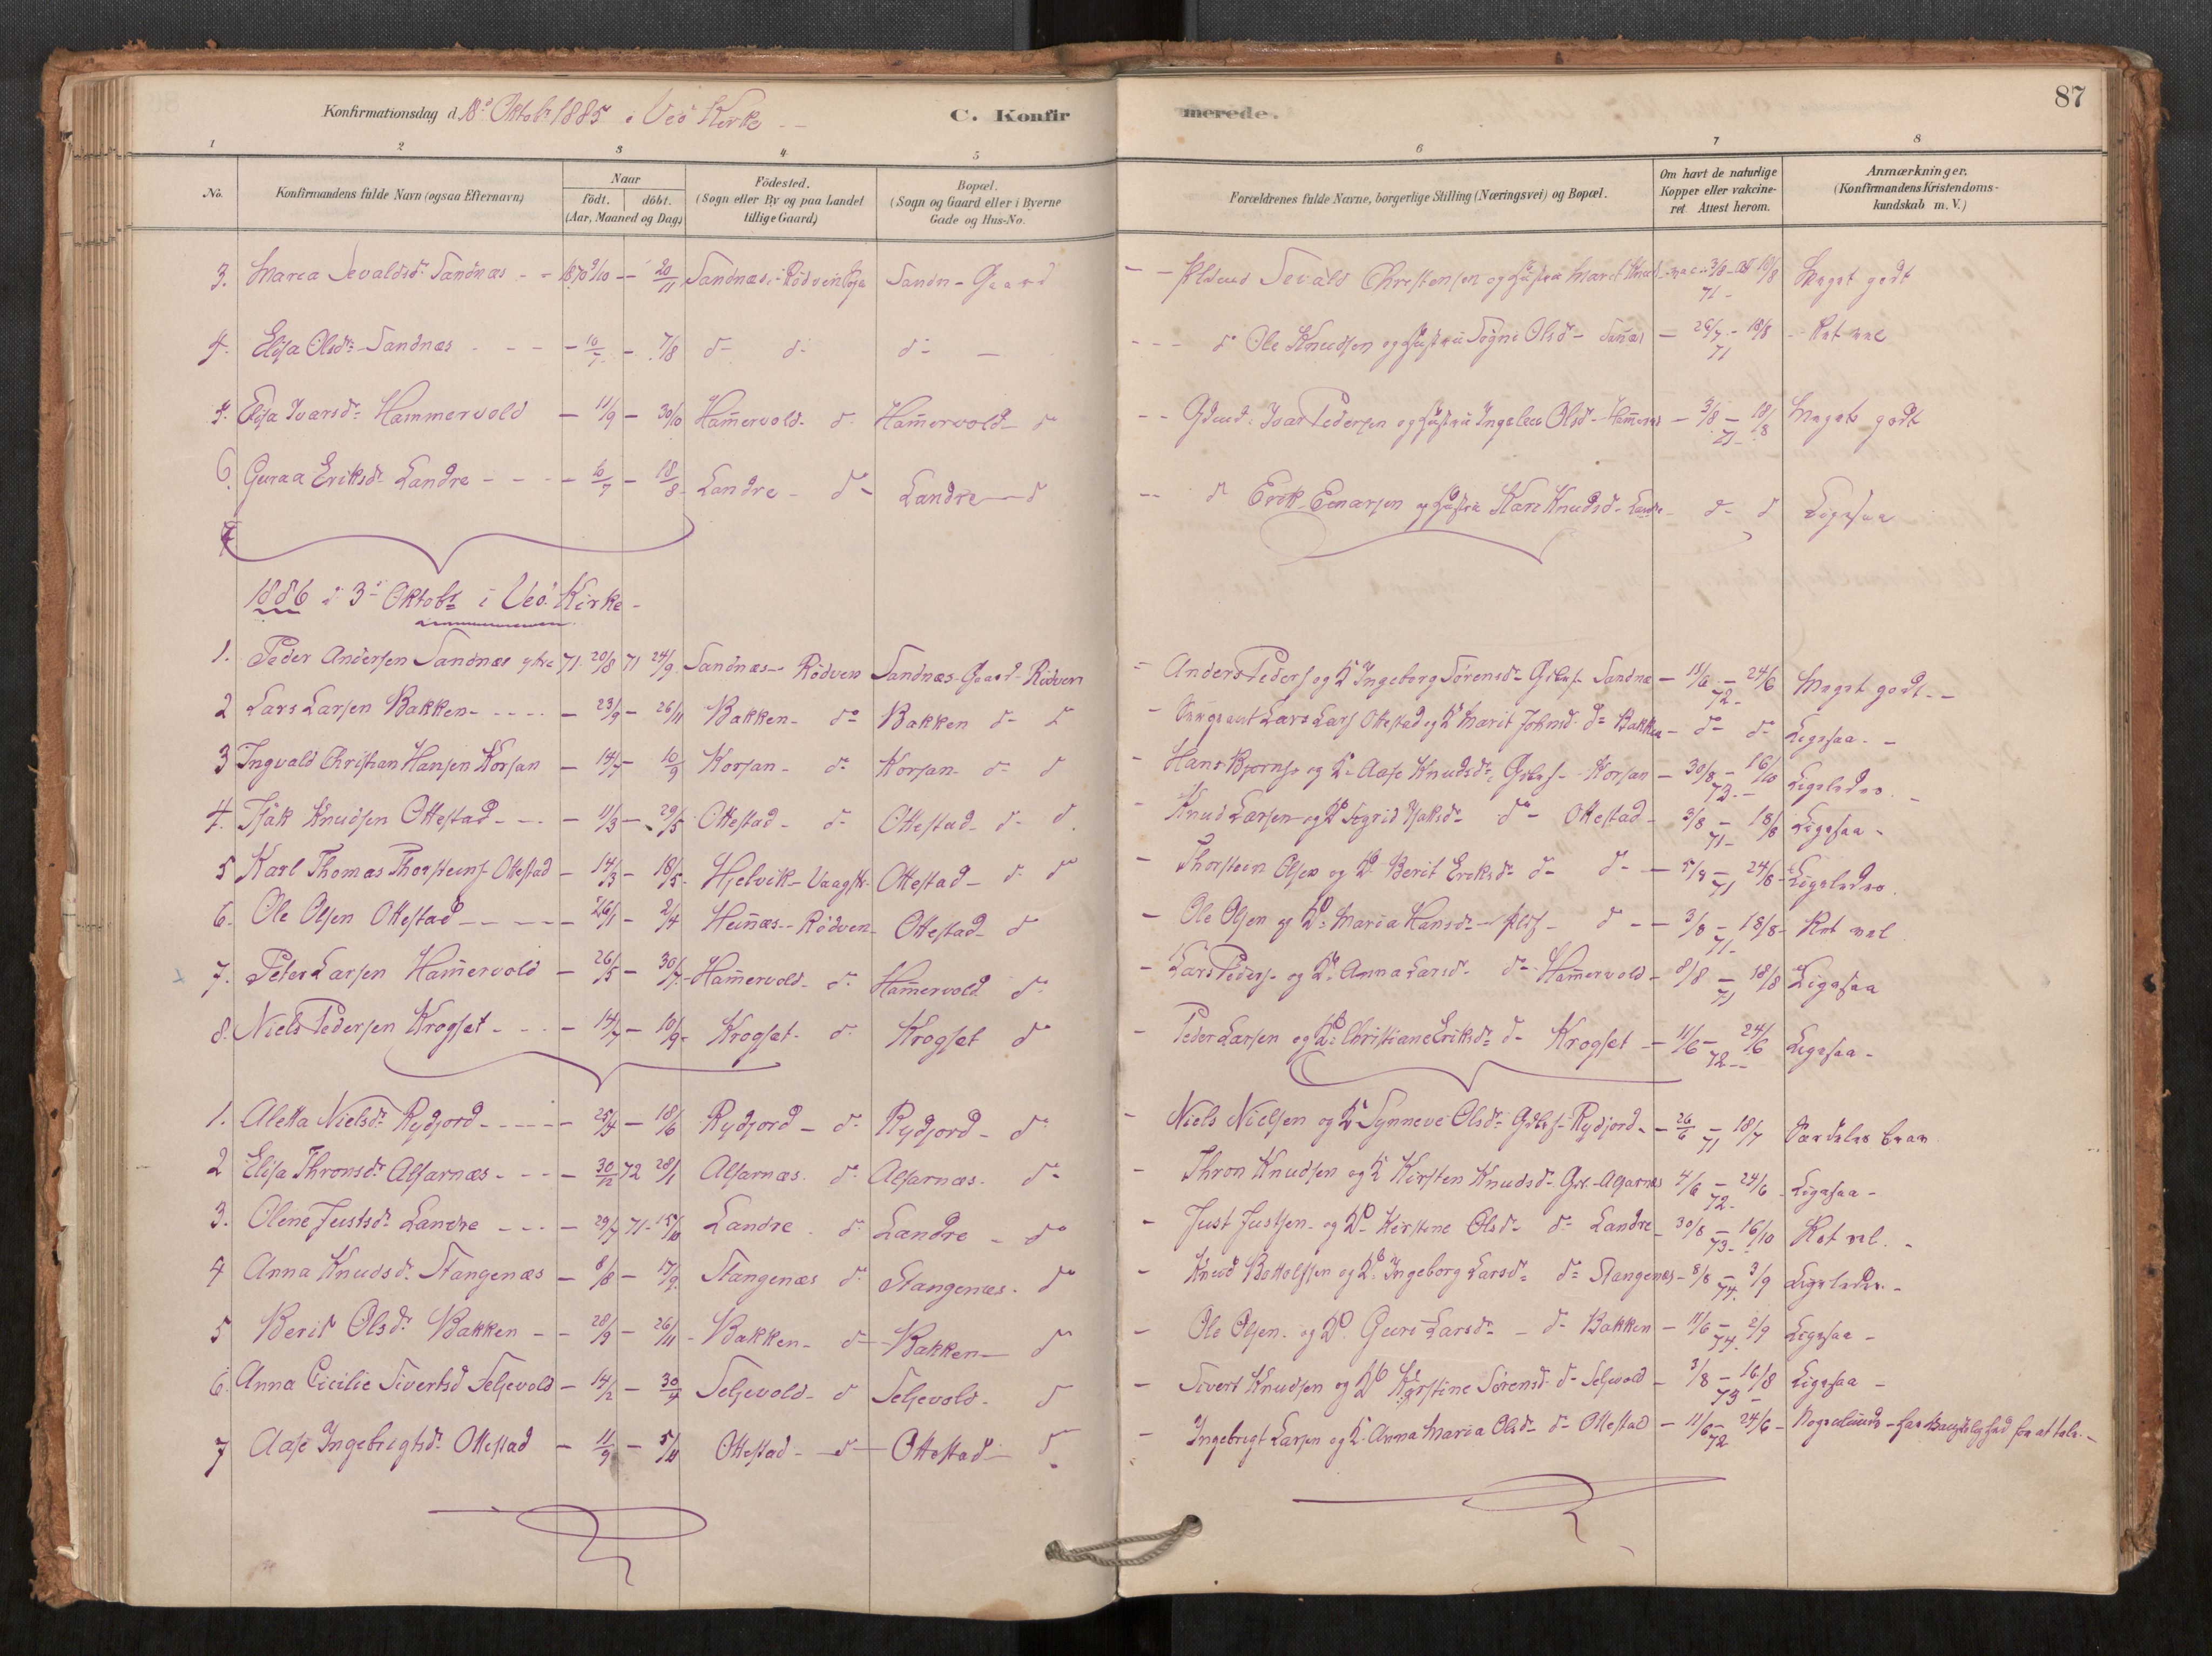 87
Konfirmationsdag d. 18de Oktob 1885 i Veö Kirke
C. Konfirmerede.
1 2 3 4 5 6 7 8
No. Konfirmandens fulde Navn (ogsaa Efternavn) Naar födt. döbt. (Aar, Maaned og Dag.) Födested. (Sogn eller By og paa Landet tillige Gaard) Bopæl. (Sogn og Gaard eller i Byerne Gade og Hus-No. Forældrenes fulde Navne, borgerlige Stilling (Næringsvei) og Bopæl. Om havt de naturlige Kopper eller vakcineret. Attest herom. Anmærkninger. (Konfirmandens Kristendomskundskab m. V.)
3. Maria Sevaldsd. Sandnæs - - 1870 9/10 - - 20/11 Sandnæs i Rödven Sogn Sandn - Gaard - - Sevald Christensen og Hustru Marit 3/8 18/8 71 - Meget godt
4. Elisa Olsdr. Sandnæs - - - 10/7 - 7/8 do do do - - - do Ole Knudsen og Hustru Signe Olsd - - 26/7 - 18/8 71 Ret vel
5. Elisa Ivarsdr. Hammervold - 11/9 - 30/10 Ham̄ervold - do Ham̄ervold - do - - Gdmd. Ivar Pedersen og Hustru Ingeleu Olsd - - 3/8 - 18/8 71 - Meget godt
6. Guraa Eriksdr Landre - - - 6/7 - 18/8 Landre - do - Landre - do - - do Erik Einarsen og Hustru Kari Knudsd. Landre - do - do Ligesaa
7
1886 d 3die Oktobr i Veö Kirke -
1. Peder Andersen Sandnæs ytre 71 20/8 71 24/9 Sandnæs - Rödven Sandnæs - Gaard - Rödven - Anders Peders og K Ingeborg Sörensdr Sandnæ - 11/6 - 24/6 72 - Meget godt - -
2 Lars Larsen Bakken - - - - - 23/9 - 26/11 Bakken - do Bakken do - do - Lars Lars Ottestad og K Marit Johnsd. do Bakken - do - do Ligesaa -
3 Ingvald Christian Hansen Korsan - 14/7 - 10/9 Korsan - do Korsan - do - do - Hans Bjørns og K. Aase Knudsdr. Korsan - 30/8 - 16/10 73 - Ligeledes. -
4. Isak Knudsen Ottestad - - - 11/3 - 29/5 Ottestad - do Ottestad - do - do - Knud Larsen og K Sigrid Isaksdr do - Ottestad - 3/8 - 18/8 71 - Ligesaa -
5 Karl Thomas Thorsteins Ottestad - 14/3 - 18/5 - Hjelvik - Vaagstr. Ottestad - do - do - Thorstein Olsen og K. Berit Eriksdr do - do - - 5/8 - 24/8 71 - Ligeledes.
6. Ole Olsen Ottestad - - - - 26/1 - 2/4 Hei̅næs - Rödven - Ottestad - do - Ole Olsen og K. Maria Hansdr - do - - 3/8 - 18/8 - 71 - Ret vel
7. Peter Larsen Ham̄ervold - 26/5 - 30/7 - Ham̄ervold - do Ham̄ervold do - Lars Peders - og K. Anna Larsdr do - Ham̄ervold - 8/8 - 18/8 71 Ligesaa
8. Niels Pedersen Krogset - - - 14/7 - 10/9 - Krogset - do Krogset do - Peder Larsen og K. Christiane Eriksdr do - Krogset - 11/6 - 24/6 72 - - Ligesaa -
1. Aletta Nielsdr Rydjord - - - - - 25/4 - 18/6 Rydjord - do Rydjord - do - Niels Nielsen og K Synneve Olsdr Rydjord - - 26/6 - 18/7 71 Særdeles bra
2 Elisa Thronsdr Alfarnæs - - - - 30/12 72 28/1 Alfarnæs. do Alfarnæs. do - Thron Knudsen og K Kirsten Knudsdr Alfarnæs 4/6 - 24/6 72 - Ligesaa -
3. Olene Justsdr Landre - - - - 29/7 71 - 15/10 Landre do Landre - do - Just Justsen - og K. Kirstine Olsdr do Landre - 30/8 - 16/10 73 - Ret vel. -
4 Anna Knudsdr. Stangenæs - 8/8 - 17/9. Stangenæs do Stangenæs. do - Knud Bottolfsen og K. Ingeborg Larsdr do Stangenæs - 8/8 - 3/9 74. Ligeledes. -
5 Berit Olsdr. Bakken - - 28/9 - 26/11 - Bakken - do Bakken - do - Ole Olsen - og K. Guri Larsdr - do Bakken - 11/6 - 2/9 74. Ligesaa -
6. Anna Cicilie Sivertsd Seljevold - 14/2 - 30/4 Seljevold - do Seljevold - do - Sivert Knudsen og K Karstine Sörensd. do Seljevold - 3/8 - 16/8 73 - Ligesaa -
7 Aase Ingebrigtsdr Ottestad - 11/9 - 5/11 Ottestad - do Ottestad - do - Ingebrigt Larsen og K. Anna Maria Olsdr do - Ottestad - 11/6 - 24/6 - 72 Nogenlunde - har Vanskelighed for at tale. -